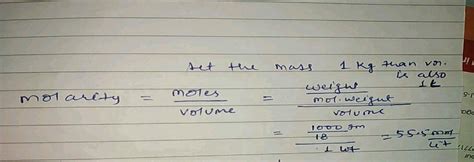 let the mass 1 kg than vol.
is also
1 L
molarity = moles / volume = weight / mol. weight / volume
= 1000 gm / 18 / 1 lit = 55.5 mol / lit